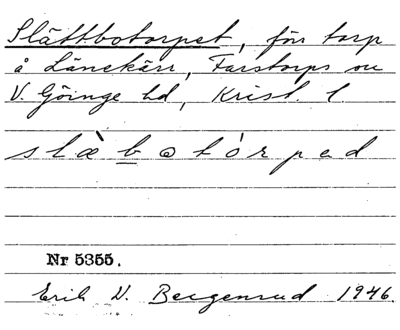 Slättbotorpet, förr torp
å Länekärr, Farstorps sn
V. Göinge hd, Krist. l
slæ̀bɷtòrpəd
Nr 5355.
Erik V. Bergenrud 1946.